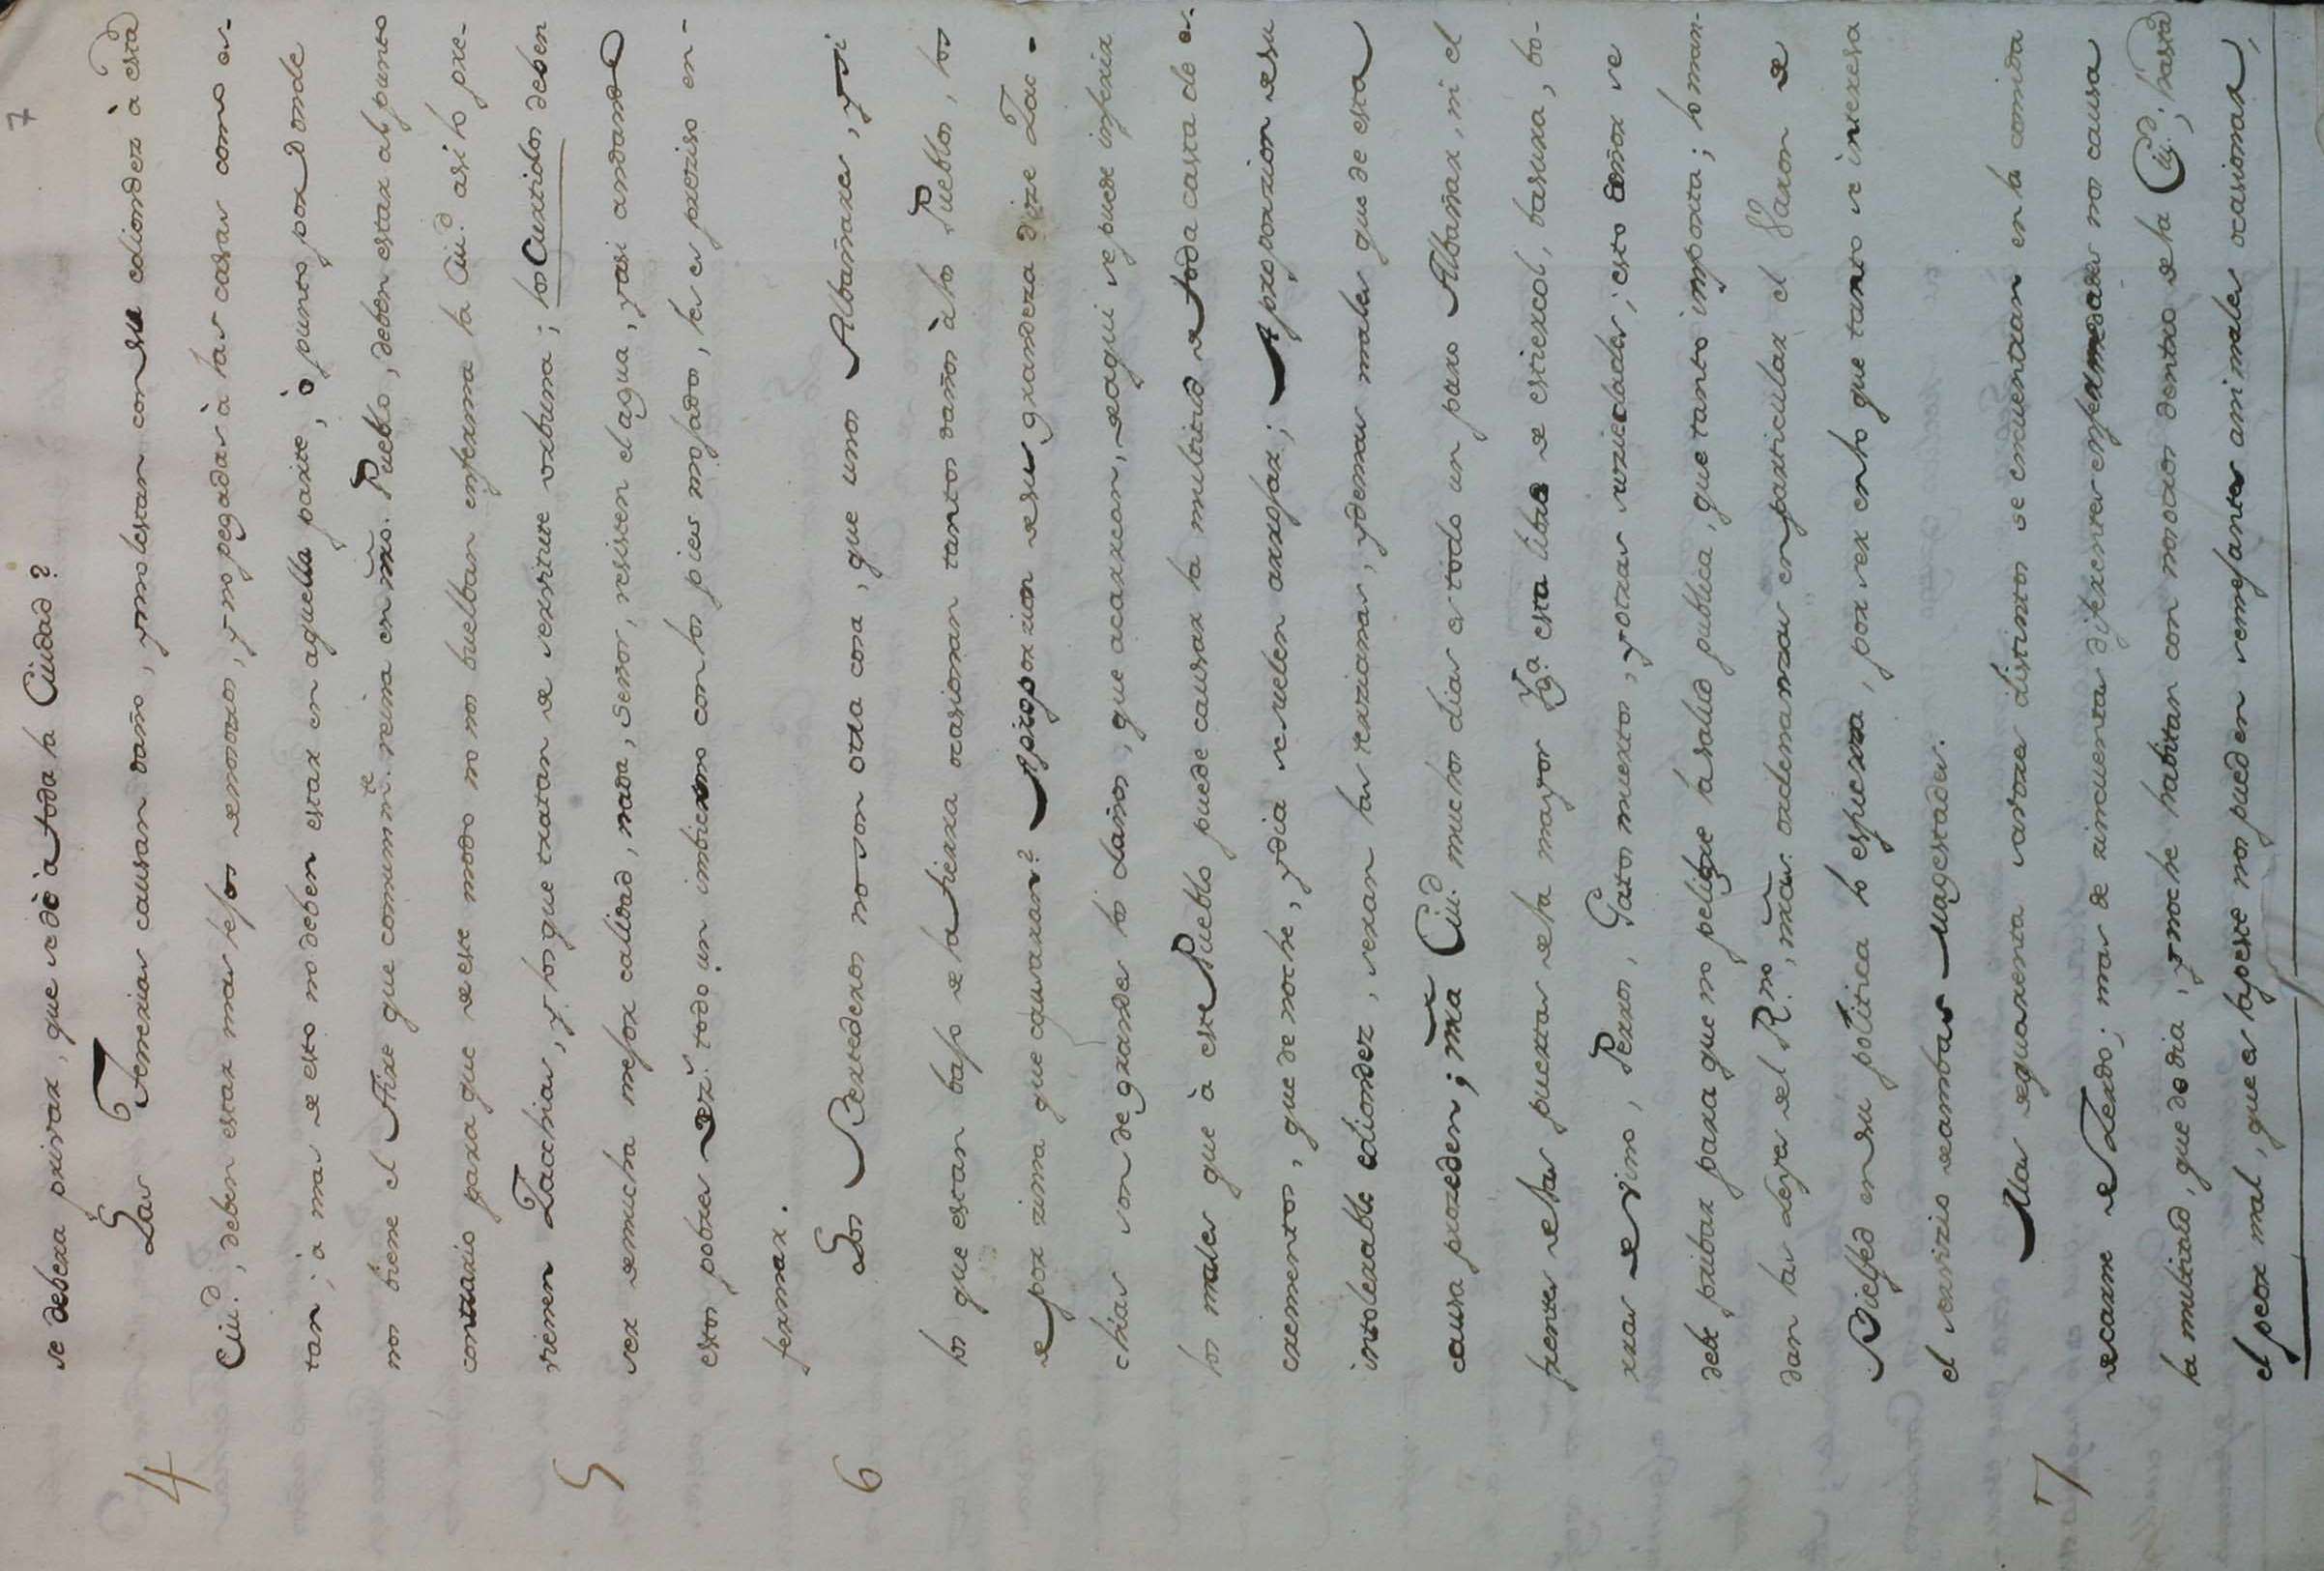 7
se debera privar, que se dè à toda la Ciudad?
4 Las Tenerias causan daño, y molestan con su ediondez à esta
Ciu.d, deben estar mas lejos de nosotros, y no pegadas à las casas como es-
tan; à mas de esto no deben estar en aquella parte, ò punto por donde
nos biene el Aire que comunm.te reina en nr̃o. Pueblo, deben estar al punto
contrario para que de este modo no nos buelban enferma la Ciu.d asi lo pre-
5 vienen Zacchias, y los que tratan de servitute urbana; los Curtidos deben
ser de mucha mejor calidad, nada, Señor, resisten el agua, y asi andando
estos pobres
todo un imbierno con los pies mojados, les es preziso en-
fermar.
6 Los Bertederos no son otra cosa, que unos Albañares, y si
los que estan bajo de la tierra ocasionan tantos daños à los Pueblos, los
de por zima que causaran? A proporzion de su grandeza dize Zac-
chias son de grandes los daños, que acarrean, de aqui se puede inferir
los males que à este Pueblo puede causar la multitud de toda casta de es-
crementos, que de noche, y dia se suelen arrojar; A proporzion de su
intolerable ediondez, seran las terzianas, y demas males que de esta
causa prozeden; nr̃a Ciu.d muchos dias es todo un puro Albañar, ni el
frente de las puertas de la mayor Yg.a esta libre de estiercol, basura, bo-
rras de vino, Perros, Gatos muertos, y otras suziedades; esto Señor se
debe pribar para que no peligre la salud publica, que tanto importa; lo man-
dan las Leyes del R.no, nr̃as ordenanzas en particular el Varon de
Bielfed en su politica lo espresa, por ser en lo que tanto se interesa
el servizio de ambas Magestades.
7 Mas de quarenta vasos distintos se encuentran en la comida
de carne de Zerdo; mas de zincuenta diferentes enfermedades nos causa
la multitud, que de dia, y noche habitan con nosotros dentro de la Ciu.d; hasta
el peor mal, que es la peste nos pueden semejantes animales ocasionar,